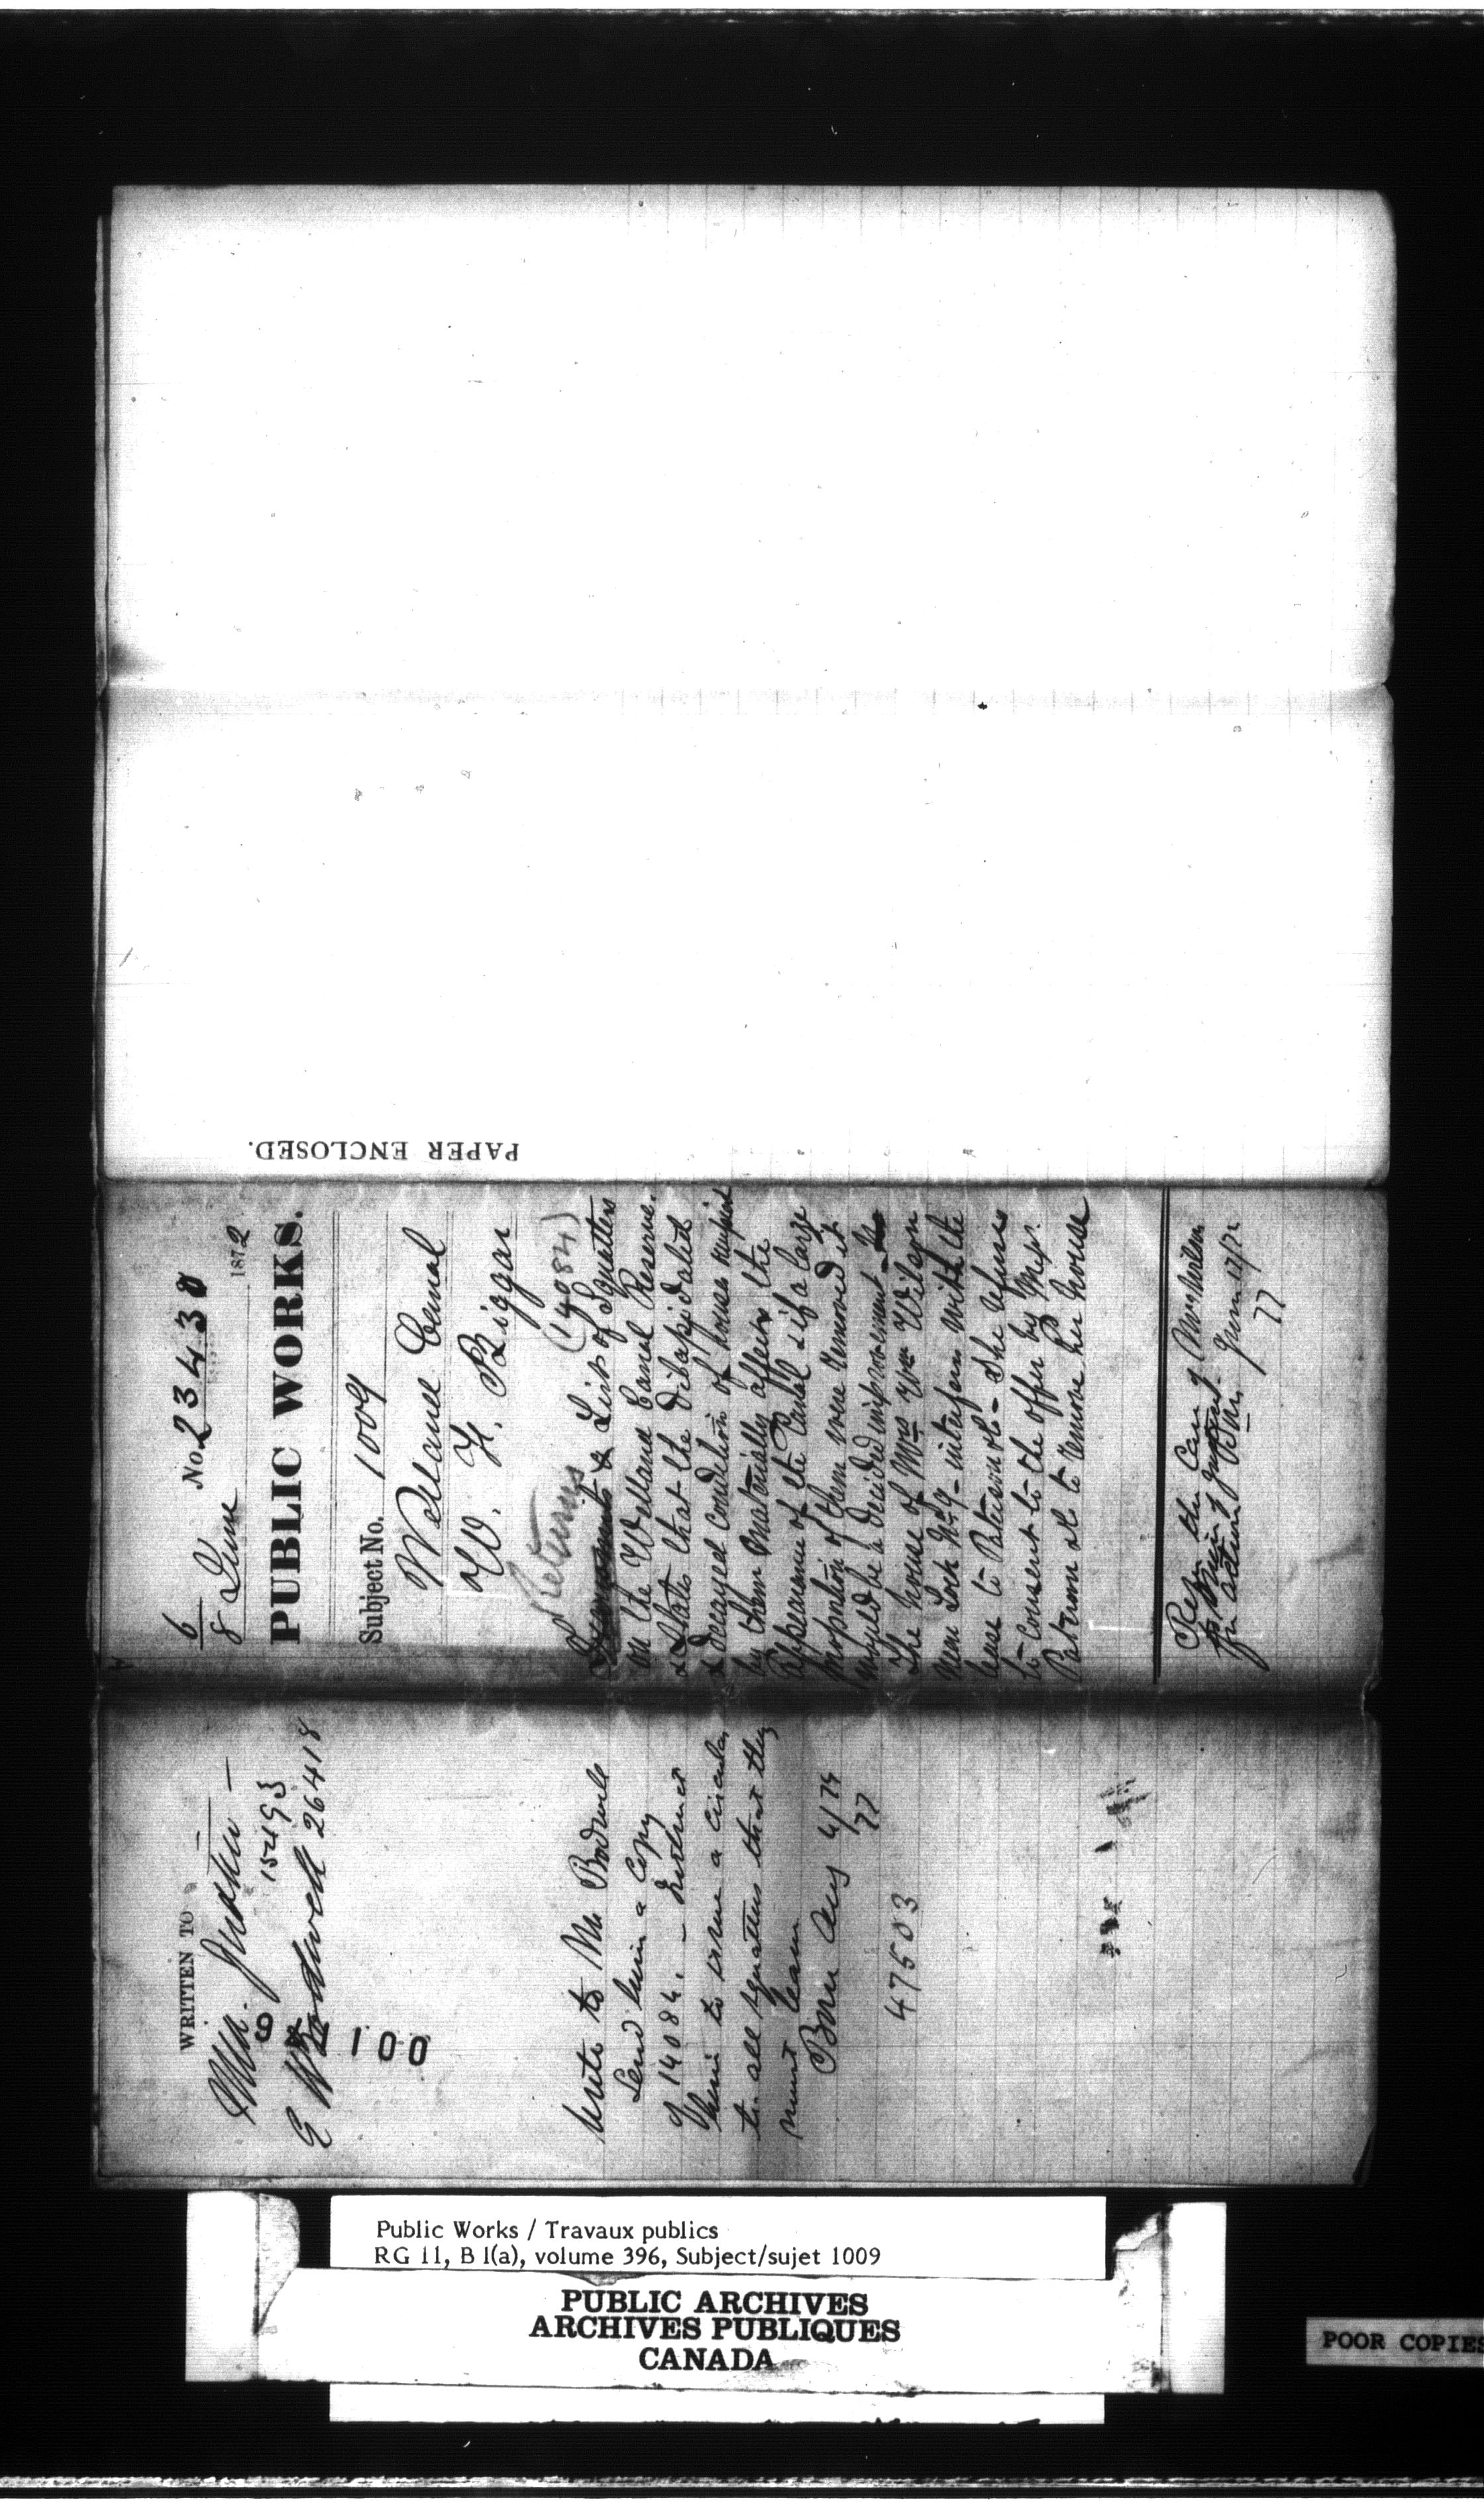 PAPER ENCLOSED.
6
8 June
No 23438
1872
PUBLIC WORKS.
Subject No. 1009
Welland Canal
W. F. Biggar
Returns (14084)
Documents & List of Squatters
on the Welland Canal Reserve.
& States that the dilapidated
& decayed condition of houses occupied
by them materially affects the
Appearance of the Canal & if a large
proportion of them were removed it
would be a decided improvement
The house of Mrs Wm Wilson
near Lock No 9 - interferes with the
lease to Paterson & Co - She refuses
to Consent to the offer by Mr
Paterson & to remove her house
Refer the Case of Mrs Wilson
to Min of Justice
for action
June 17/72
77
WRITTEN TO
Min. Justice —
15493
E V Bodwell 26418
9 100
Write to Mr Bodwell
Send him a Copy
of 14084. - Instruct
him to issue a Circular
to all squatters that they
must leave
Aug 4/74
77
47503
Public Works / Travaux publics
RG 11, B 1(a), volume 396, Subject/sujet 1009
PUBLIC ARCHIVES
ARCHIVES PUBLIQUES
CANADA
POOR COPIES